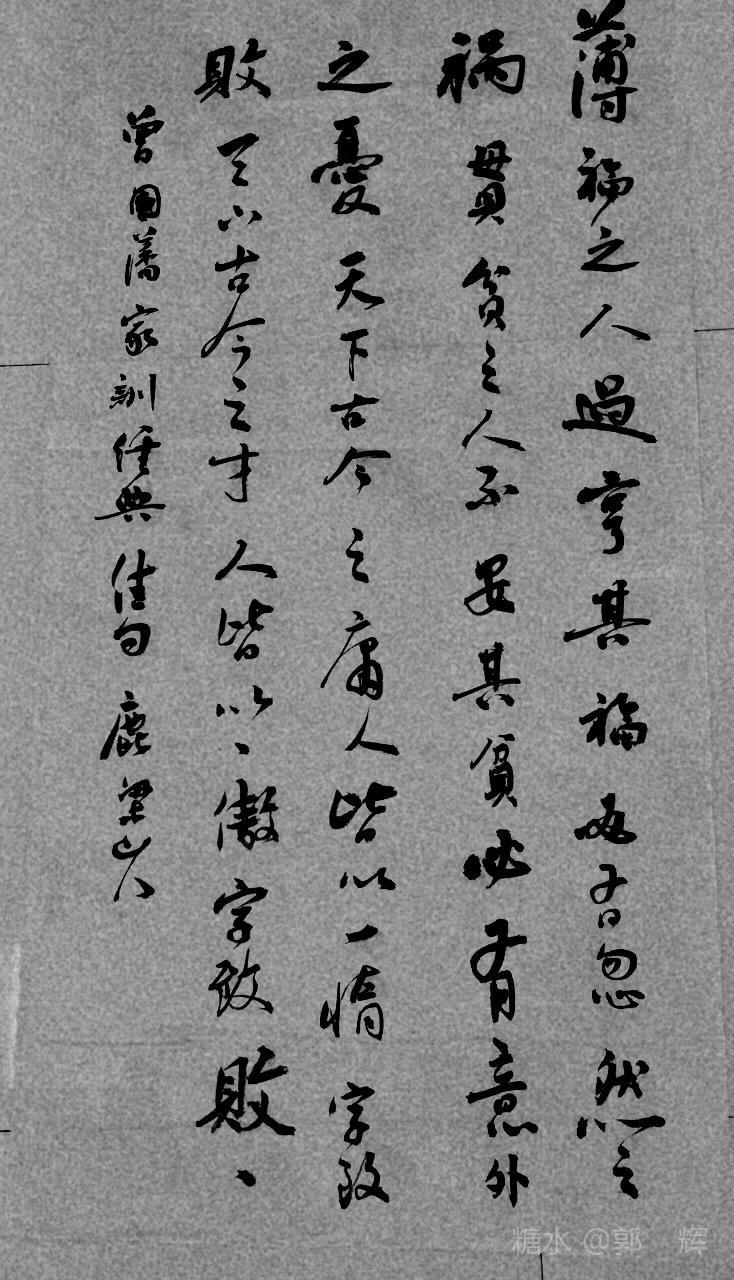 薄福之人過享其福必有忽然之
禍貫貧之人不安其貧必有意外
之憂天下古今之庸人皆以一惰字致
敗天下古今之才人皆以一傲字致敗
曾國藩家訓經典佳句鹿梁山人
糖水 @郭 辉